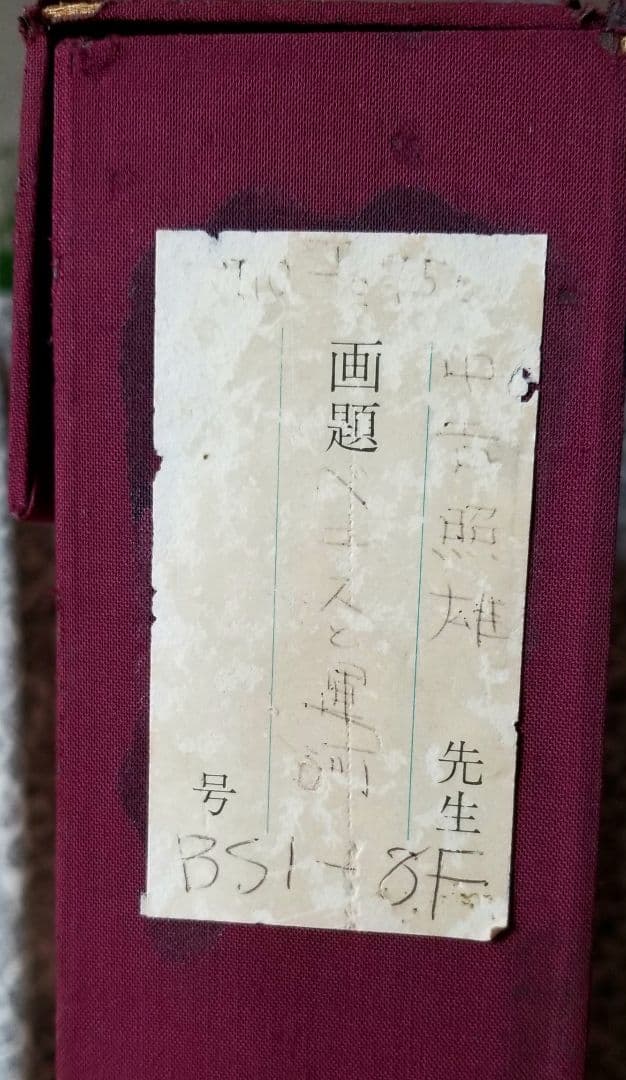 中吉照雄 先生
画題 ベニスと運河
号
BS1-8F